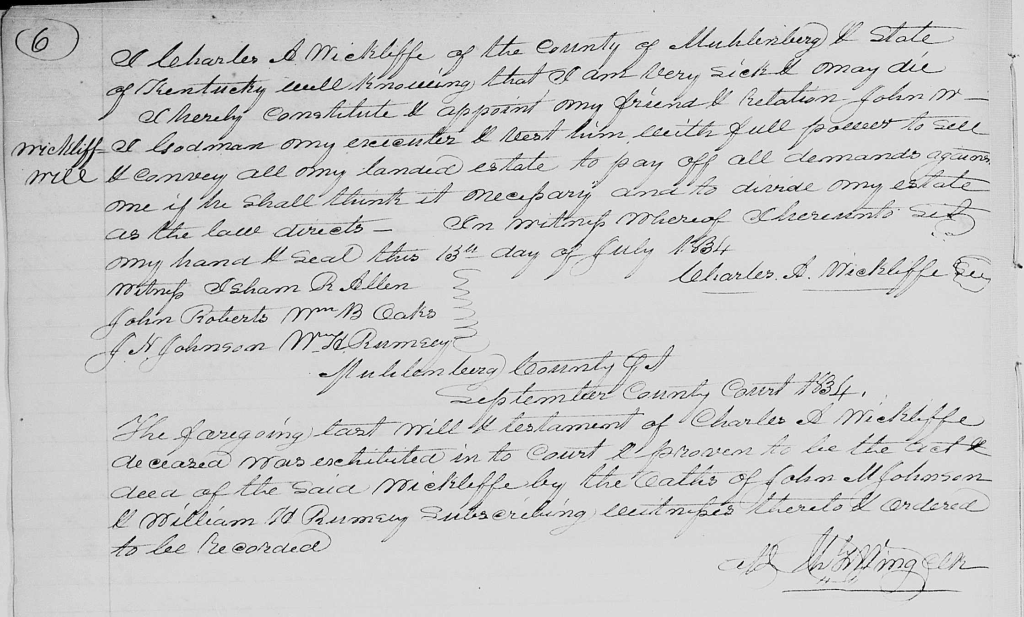 6
I Charles A Wickliffe of the County of Muhlenberg & State
of Kentucky well knowing that I am very sick & may die
I hereby Constitute & appoint my friend & relation John W
Wickliff
will
I Godman my executer & vest him with full power to sell
& convey all my landed estate to pay off all demands against
me if he shall think it necessary and to divide my estate
as the law directs — In witness whereof I hereunto Set
my hand & Seal this 13th day of July 1834
Charles A. Wickliffe
Witness Isham R Allen
John Roberts Wm B Oaks
J. N. Johnson Wm H. Rumsey
Muhlenberg County
September County Court 1834.
The foregoing last will & testament of Charles A Wickliffe
deceased was exhibited in to Court & proven to be the act &
deed of the said Wickliffe by the Oaths of John M Johnson
& William H Rumsey Subscribing witnesses thereto & ordered
to be Recorded
Wing